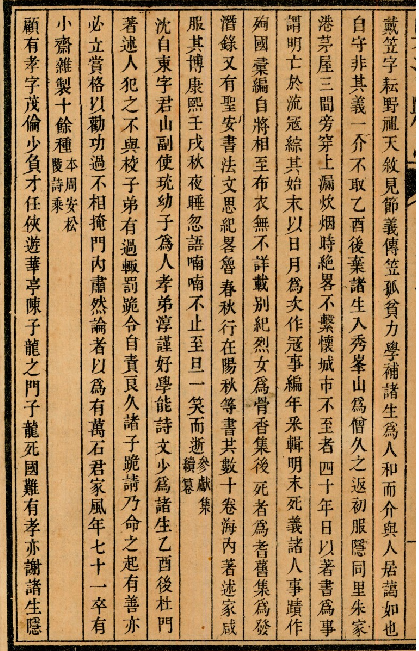 戴笠字耘野祖天敘見節義傳笠孤貧力學補諸生爲人和而介與人居藹如也
自守非其義一介不取乙酉後棄諸生入秀峯山爲僧久之返初服隱同里朱家
港茅屋三間旁穿上漏炊烟時絶畧不繫懷城市不至者四十年日以著書爲事
謂明亡於流寇綜其始末以日月爲次作寇事編年釆輯明末死義諸人事蹟作
殉國彙編自將相至布衣無不詳載別紀烈女爲骨香集後死者爲耆舊集爲發
潛錄又有聖安書法文思紀畧魯春秋行在陽秋等書其數十卷海內著述家咸
服其博康熙壬戌秋夜睡忽語喃喃不止至旦一笑而逝參獻集續纂
沈自東字君山副使珫幼子爲人孝弟淳謹好學能詩文少爲諸生乙酉後杜門
著述人犯之不與校子弟有過輙罰跪令自責良久諸子跪請乃命之起有善亦
必立賞格以勸功過不相掩門內肅然論者以爲有萬石君家風年七十一卒有
小齋雜製十餘種本周安松陵詩乘
顧有孝字茂倫少負才任俠遊華亭陳子龍之門子龍死國難有孝亦謝諸生隱